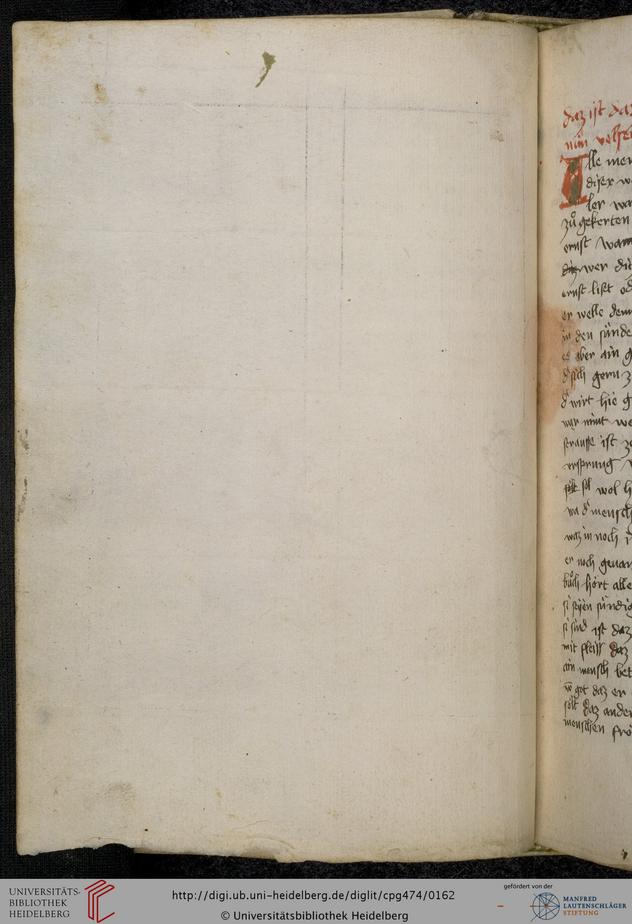 daz ist daz
nün
Alle men
diser w
ler wa
zů gekerten
ernst wann
wer die
ernst liset od
er welle denn
in den sünde
es aber ain g
d sich gern z
d wirt hie g
war nimt we
ist ze
vrsprung
sol wol h
wa d mensch
waz in noch
er noch
bůch hört alle
si syen sündig
si sind ist daz
mit fleiss daz
ain mensch bet
got daz er
sölt daz ander
menschen frö
UNIVERSITÄTS-
BIBLIOTHEK
HEIDELBERG
http://digi.ub.uni-heidelberg.de/diglit/cpg474/0162
© Universitätsbibliothek Heidelberg
gefördert von der
MANFRED
LAUTENSCHLÄGER
STIFTUNG